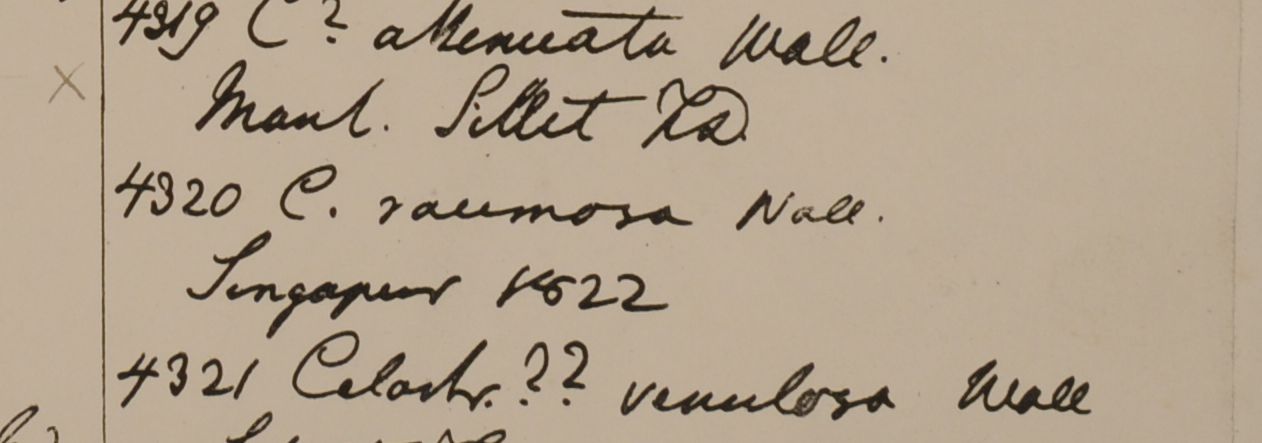 4319 C? attenuata Wall.
Mont. Sillet FD
4320 C. racemosa Wall.
Singapur 1822
4321 Celastr. ?? venulosa Wall